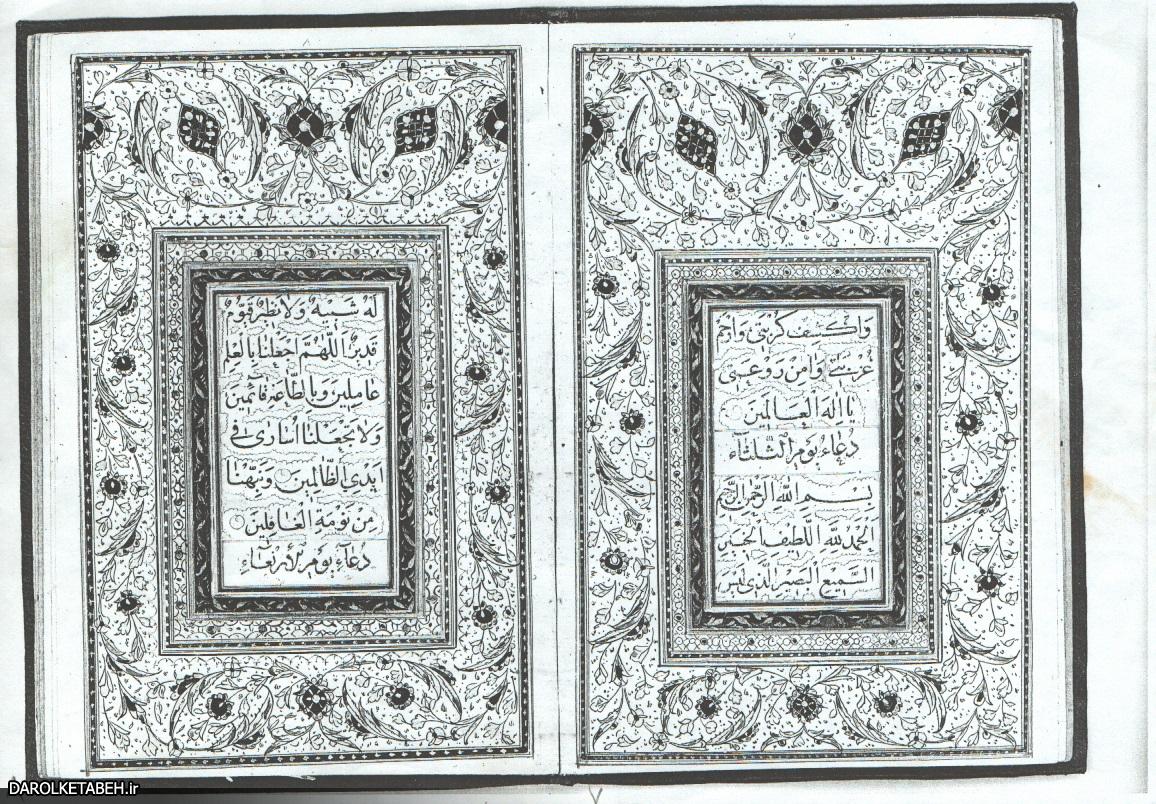 وَاكْشِفْ كُرْبَتِي وَارْحَمْ
غُرْبَتِي وَآمِنْ رَوْعَتِي
يَا إِلٰهَ الْعَالَمِينَ
دُعَاءُ يَوْمِ الثَّلَثَاءِ
بِسْمِ اللّٰهِ الرَّحْمٰنِ الرَّحِيمِ
اَلْحَمْدُ لِلّٰهِ اللَّطِيفِ الْخَبِيرِ
السَّمِيعِ الْبَصِيرِ الَّذِي لَيْسَ
لَهُ شَبِيهٌ وَلَا نَظِيرٌ قَيُّومٌ
قَدِيرٌ اَللّٰهُمَّ اجْعَلْنَا بِالْعِلْمِ
عَامِلِينَ وَبِالطَّاعَةِ قَائِمِينَ
وَلَا تَجْعَلْنَا أُسَارَى فِي
أَيْدِي الظَّالِمِينَ وَنَبِّهْنَا
مِنْ نَوْمَةِ الْغَافِلِينَ
دُعَاءُ يَوْمِ الْأَرْبَعَاءِ
٧
DAROLKETABEH.ir